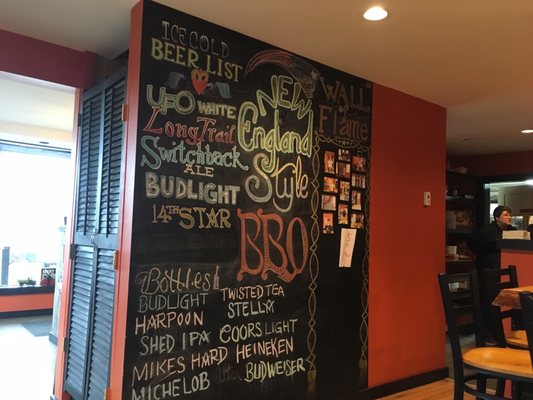 ICE COLD
BEER LIST
UFO WHITE
Long Trail
Switchback
ALE
BUDLIGHT
14TH STAR
NEW
England
Style
BBQ
WALL
of
Flame
Bottles!
BUDLIGHT
HARPOON
SHED IPA
MIKES HARD
MICHELOB
TWISTED TEA
STELLA
COORS LIGHT
HEINEKEN
BUDWEISER